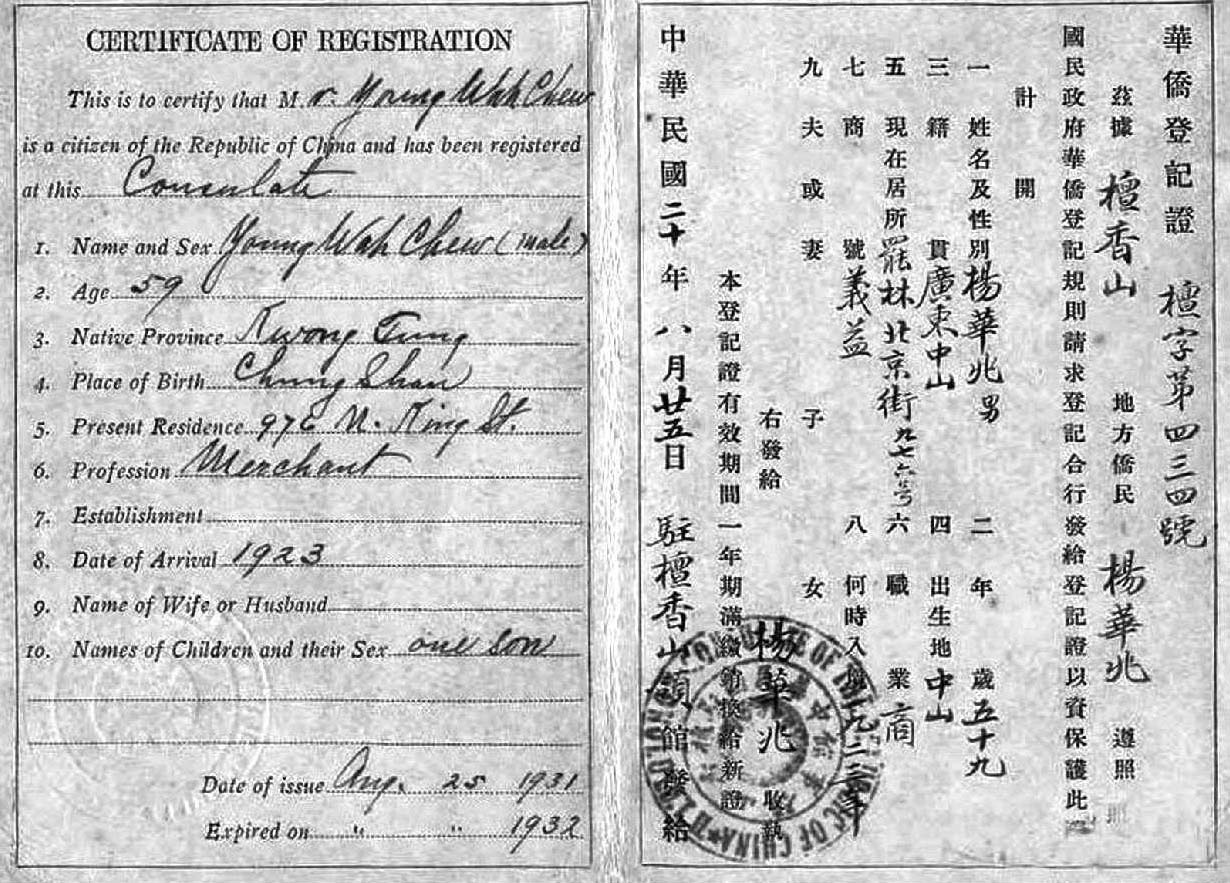 CERTIFICATE OF REGISTRATION
This is to certify that Mr. Young Wah Chew
is a citizen of the Republic of China and has been registered
at this Consulate
1. Name and Sex Young Wah Chew (male)
2. Age 59
3. Native Province Kwong Tung
4. Place of Birth Chung Shan
5. Present Residence 976 N. King St.
6. Profession Merchant
7. Establishment
8. Date of Arrival 1923
9. Name of Wife or Husband
10. Names of Children and their Sex one son
Date of issue Aug. 25 1931
Expired on " " 1932
華僑登記證 檀字第四三四號
茲據 檀香山 地方僑民 楊華兆 遵照
國民政府華僑登記規則請求登記合行發給登記證以資保護此
計開
一 姓名及性別 楊華兆 男 二 年歲 五十九
三 籍貫 廣東中山 四 出生地 中山
五 現在居所 罷林北京街九七六号 六 職業 商
七 商號 義益 八 何時入 一九二三年
九 夫或妻 子 女
右發給 楊華兆 收執
本登記證有效期間一年期滿繳銷換給新證
中華民國二十年八月廿五日 駐檀香山領館發給
CONSULATE OF THE REPUBLIC OF CHINA